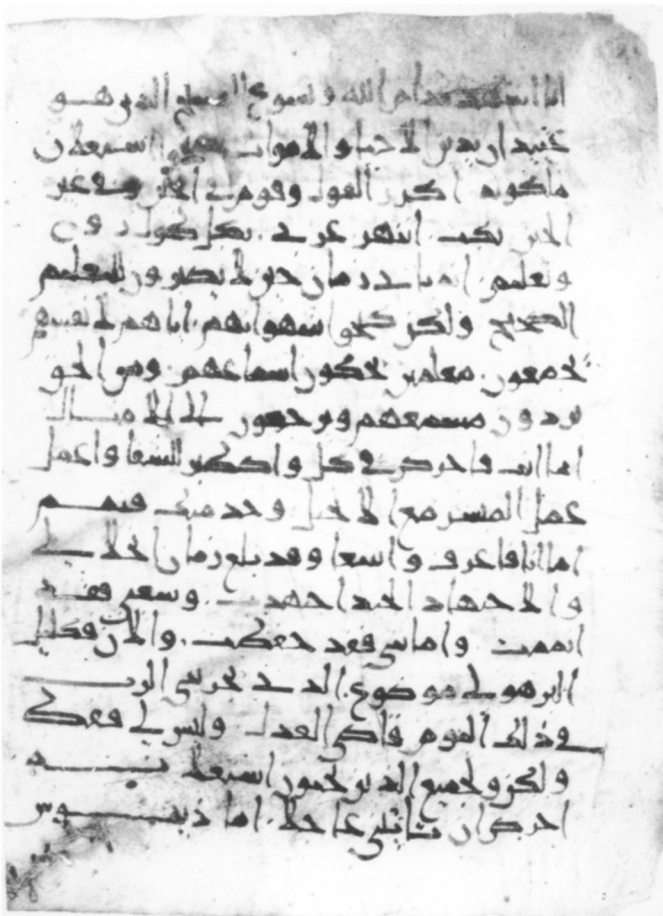 انا استشهد قدام الله ويسوع المسيح الذي هو
عتيد ان يدين الاحيا والاموات استعلان
ملكوته اكرز القول وقوم في الحين وفي غير
الحين بكت انتهر عزي بكل طول روح
وتعليم انه ياتي زمان حين لا يصبرون للتعليم
الصحيح ولكن كنحو شهواتهم اياهم لانفسهم
يجمعون معلمين يحكون اسماعهم وهو الحق
يردون مسمعهم ويرجعون الى الامثال
اما انت فاحرص في كل واصطبر للشقا واعمل
عمل المبشر وخدمتك فتمم
اما انا فاعرف واسعا وقد بلغ زمان انحلالي
والاجهاد الجيد اجهدت وسعيي فقد
اتممت وامانتي فقد حفظت والان فكليل
البر هو لي موضوع الذي يجزيني الرب
في ذلك اليوم قاضي العدل وليس لي فقط
ولكن ولجميع الذين يحبون استعلانه
احرص ان تاتيني عاجلا اما ديموس